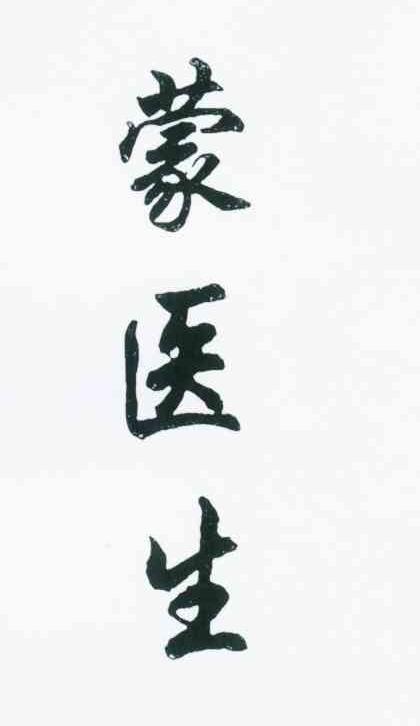 蒙医生